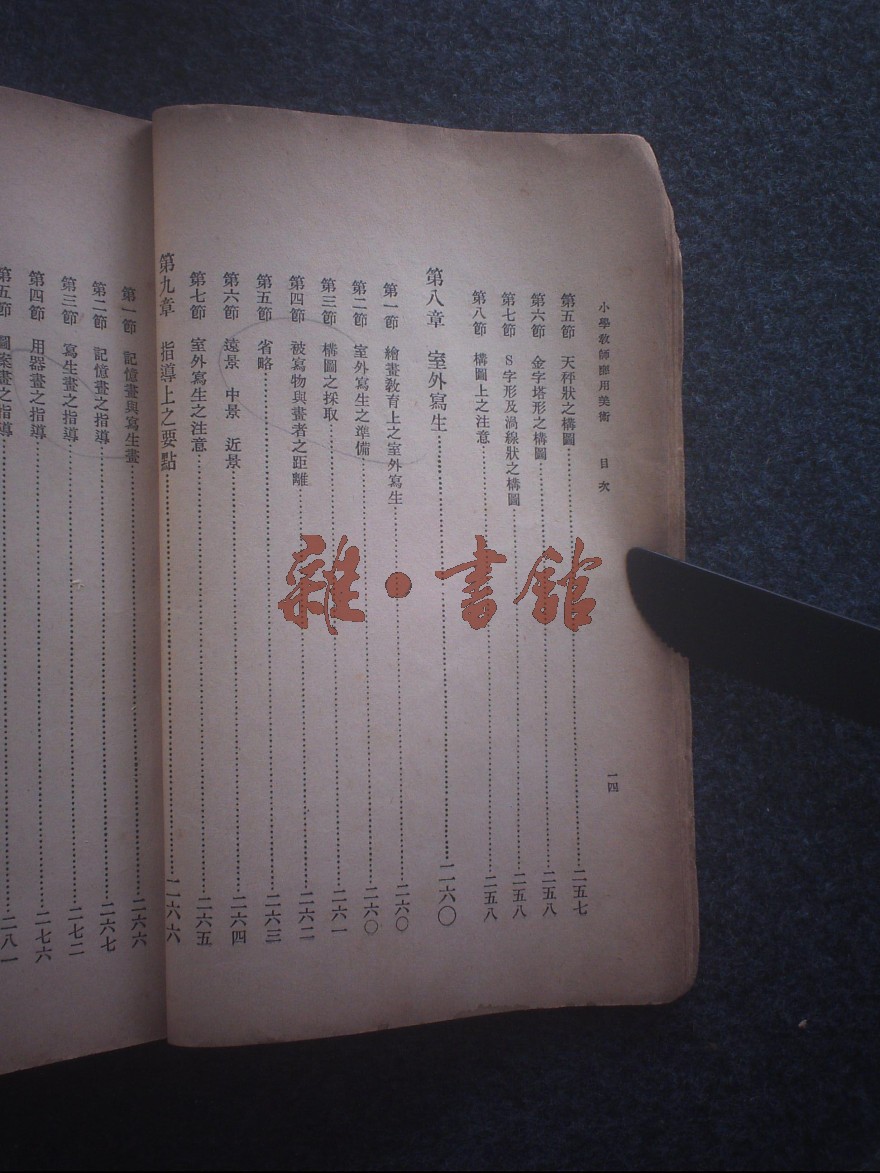 小學敎師應用美術　目次
一四
第五節　天秤狀之構圖……二五七
第六節　金字塔形之構圖……二五八
第七節　S字形及渦線狀之構圖……二五八
第八節　構圖上之注意……二五八
第八章　室外寫生……二六〇
第一節　繪畫敎育上之室外寫生……二六〇
第二節　室外寫生之準備……二六〇
第三節　構圖之採取……二六一
第四節　被寫物與畫者之距離……二六二
第五節　省略……二六三
第六節　遠景　中景　近景……二六四
第七節　室外寫生之注意……二六五
第九章　指導上之要點……二六六
第一節　記憶畫與寫生畫……二六六
第二節　記憶畫之指導……二六七
第三節　寫生畫之指導……二七二
第四節　用器畫之指導……二七六
第五節　圖案畫之指導……二八一
雜·書館